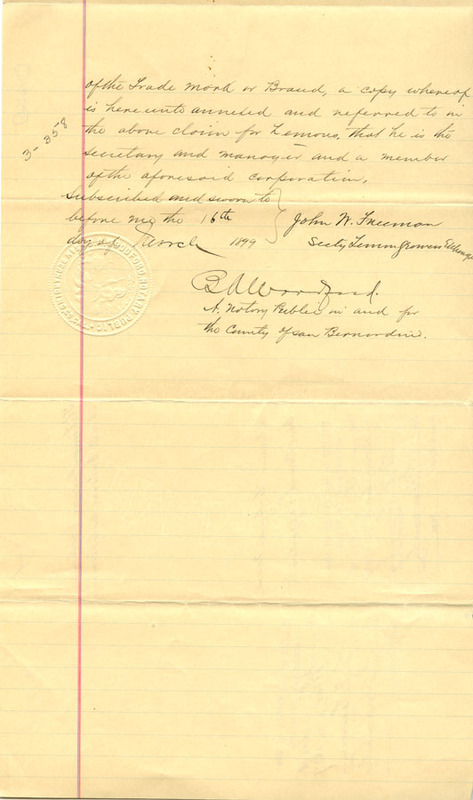 of the Trade Mark or Brand, a copy whereof
is hereunto annexed and referred to in
the above claim for Lemons, that he is the
secretary and manager and a member
of the aforesaid corporation.
3-358
Subscribed and sworn to
before me the 16th
day of March 1899
John W. Freeman
Secty Lemon Growers Exchange
B A Woodford.
A. Notary Public in and for
the County of San Bernardino.